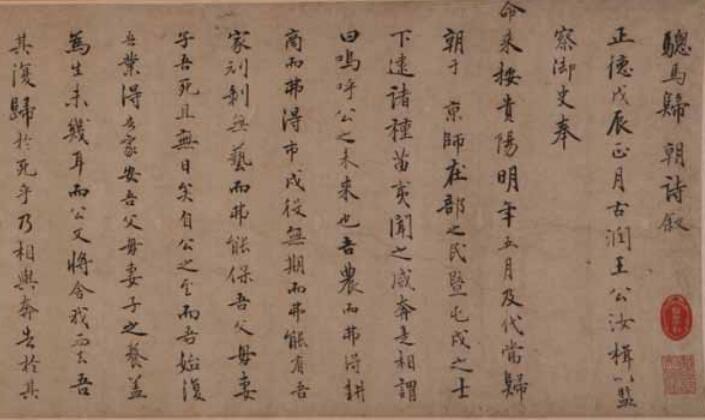 驄馬歸 朝詩敘
正德戊辰正月古潤王公汝楫以監
察御史奉
命來按貴陽明年五月及代當歸
朝于 京師在部之民暨屯戍之士
下逮諸種苗夷聞之咸奔走相謂
曰嗚呼公之未來也吾農而弗得耕
商而弗得市戍役無期而弗能有吾
家刓剝無藝而弗能保吾父母妻
子吾死且無日矣自公之至而吾始復
吾業得吾家安吾父母妻子之養蓋
為生未幾耳而公又將舍我而去吾
其復歸於死乎乃相與奔告於其